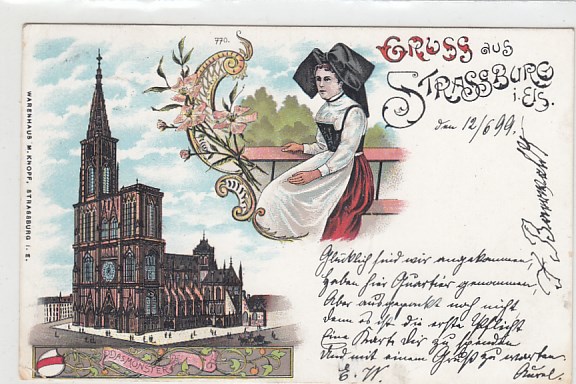 770.
GRUSS aus
STRASSBURG
i. Els.
den 12/6 99.
WARENHAUS M. KNOPF, STRASSBURG i. E.
Glücklich sind wir angekommen,
haben hier Quartier genommen,
Aber ausgepackt noch nicht
denn es ist die erste Pflicht
Eine Karte Dir zu spenden
Und mit einem Gruß zu
E. W.
DAS MÜNSTER